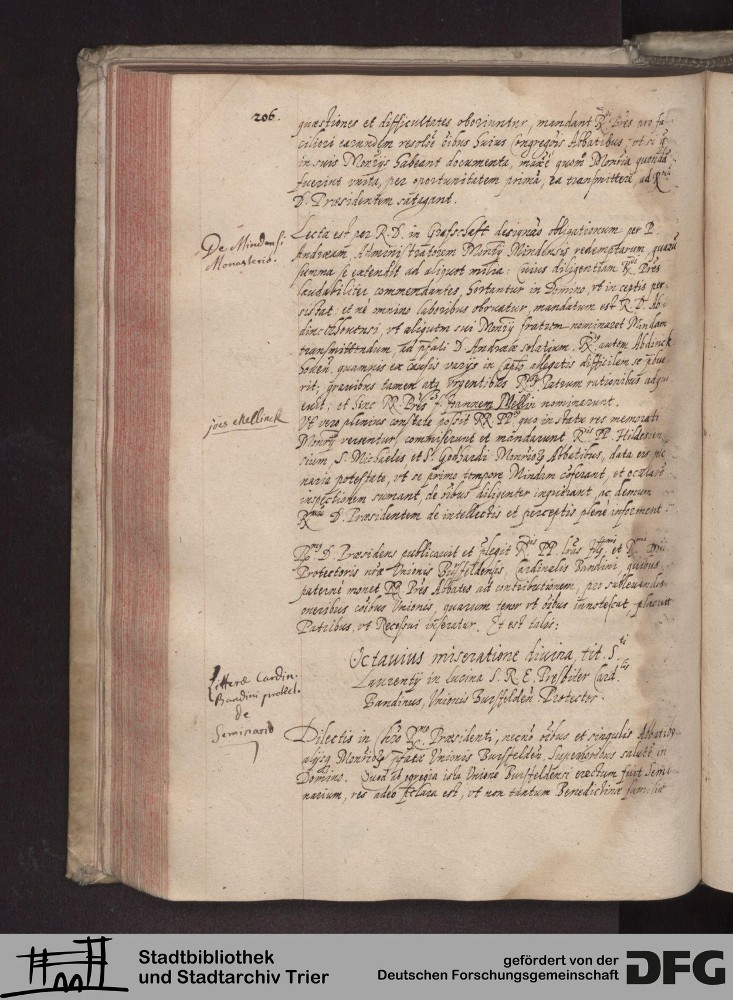 206.
quæstiones et difficultates oboriuntur, mandant RR. Pres pro fa-
cilieri earundem resolōe oībus huius Congregōis Abbatibus, vt si q
in suis Monrijs habeant documenta, quom Monria quædā
fuerint vnita, per oportunitatem primā, ea transmittere ad Rmū
D. Præsidentem satagant.
De Mindensi
Monasterio.
Lecta est per R. D. in Grafschafft designāo obligationum per P.
Andræam, Administratorem Monrij Mindensis redemptarum, quarū
summa se extendit ad aliquot milia: cuius diligentiam RR. Pres
laudabiliter commendantes, hortantur in Domino, vt in ceptis per-
sistat: et nè omnino laboribus obruatur, mandatum est R. D. Ab-
dinckhouensi, vt aliquem sui Monrij fratrem nominaret Mindam
transmittendum, ad D. Andreæ solatium. autem Abdinck-
houen. quamuis ex causis varijs in Capto allegatis difficilem se
rit; grauibus tamen atq vrgentibus Patrum rationibus
euit; et hinc RR. Pres f. Joannem Mellin nominarunt.
joes Mellinck
Vt vero plenius constare possit RR PP quo in statu res memorati
Monrij versentur, commiserunt et mandarunt PP. Hildesien-
sium, S. Michaelis et S. Godhardi Abbatibus, data eis ple-
naria potestate, vt se primo tempore Mindam cōferant, et
inspectionem sumant, de oībus diligenter inquirant, ac demum
D. Præsidentem de intellectis et perceptis plenè informent.
D. Præsidens publicauit et plegit PP lras et
Protectoris nræ Vnionis Bursfeldensis, Cardinalis Bandini, quibus
paternè monet Pres Abbates ad contributionem, pro subleuandis
oneribus cōībus Vniones, quarum tenor vt oībus innotescat, placuit
Patribus, vt Recessui inseratur. Et est talis:
Octauius miseratione diuina, tit. S.ti
Laurentij in lucina S. R. E. Presbiter Card.lis
Bandinus, Vnionis Bursfelden. Protector.
Litteræ Cardin.
Bandini protect.
de
Seminario
Dilectis in Chro Præsidenti, necnō oībus et singulis Abbatibꝫ
alijsq Vnionis Bursfelden. Superioribus salutē in
Domino. Quod ab egregia ista Vnione Bursfeldensi erectum fuit Semi-
narium, res adeo præclara est, vt non tantum Benedictinæ familiæ
Stadtbibliothek
und Stadtarchiv Trier
gefördert von der
Deutschen Forschungsgemeinschaft
DFG